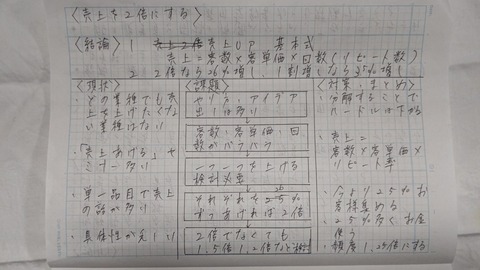 〈売上を2倍にする〉
〈結論〉 1 売上UP 基本式
売上=客数×客単価×回数(リピート数)
2 2倍なら26%増し、1割増しなら
〈現状〉
・どの業種でも売
上を上げたくな
い業種はない
・「売上あげる」セ
ミナー多い
・単一品目で売上
の話が多い
・具体性が乏しい
〈課題〉
やり方、アイデア
出しは多い
客数、客単価、回
数がバラバラ
一つ一つを上げる
検討必要
26
それぞれ25%
ずつあげれば2倍
2倍でなくても
1.5倍、1.2倍など検討
〈対策・まとめ〉
・分解することで
ハードルは下がる
・売上=
客数×客単価×
リピート率
・今より25%お
客様集める
・25%多くお金
使う
・頻度1.25倍にする